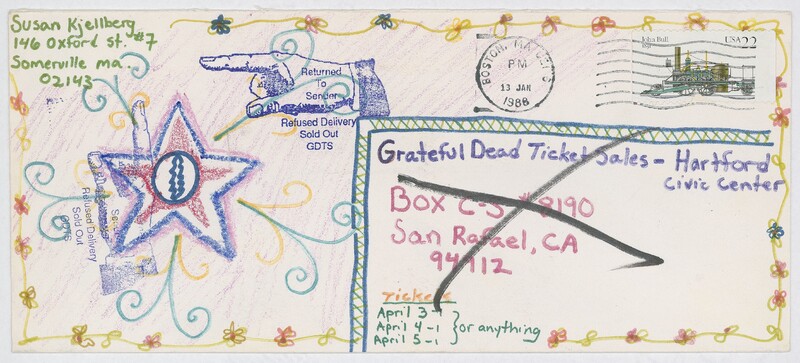 Susan Kjellberg
146 Oxford St. #7
Somerville ma.
02143
Returned
To
Sender
Refused Delivery
Sold Out
GDTS
BOSTON, MA
PM
13 JAN
1988
John Bull
1831
USA 22
Grateful Dead Ticket Sales - Hartford
Civic Center
Box C-S #8190
San Rafael, CA
94912
Tickets
April 3-1
April 4-1 } or anything
April 5-1
Refused Delivery
Sold Out
GDTS